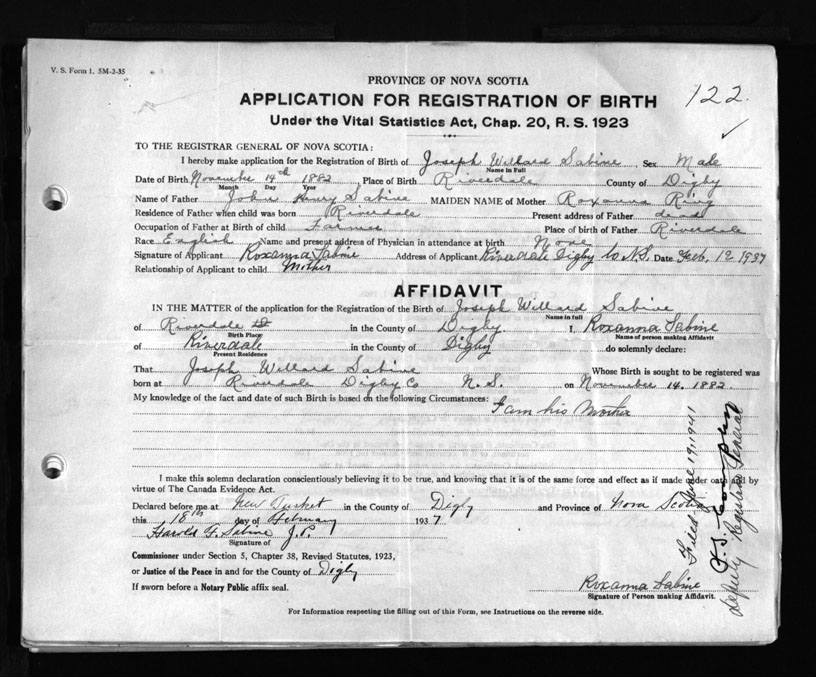 V. S. Form 1. 5M-2-35
122.
PROVINCE OF NOVA SCOTIA
APPLICATION FOR REGISTRATION OF BIRTH
Under the Vital Statistics Act, Chap. 20, R. S. 1923
TO THE REGISTRAR GENERAL OF NOVA SCOTIA:
I hereby make application for the Registration of Birth of Joseph Willard Sabine Sex Male
Name in Full
Date of Birth November 14th 1882 Place of Birth Riverdale County of Digby
Month Day Year
Name of Father John Henry Sabine MAIDEN NAME of Mother Roxanna Ring
Residence of Father when child was born Riverdale Present address of Father dead
Occupation of Father at Birth of child Farmer Place of birth of Father Riverdale
Race English Name and present address of Physician in attendance at birth None
Signature of Applicant Roxanna Sabine Address of Applicant Riverdale Digby Co N.S. Date Feb. 12 1937
Relationship of Applicant to child Mother
AFFIDAVIT
IN THE MATTER of the application for the Registration of the Birth of Joseph Willard Sabine
Name in full
of Riverdale in the County of Digby. I, Roxanna Sabine
Birth Place Name of person making Affidavit
of Riverdale in the County of Digby do solemnly declare:
Present Residence
That Joseph Willard Sabine Whose Birth is sought to be registered was
born at Riverdale Digby Co N. S. on November 14, 1882.
My knowledge of the fact and date of such Birth is based on the following Circumstances: I am his Mother
I make this solemn declaration conscientiously believing it to be true, and knowing that it is of the same force and effect as if made under oath and by
virtue of The Canada Evidence Act.
Declared before me at New Tusket in the County of Digby and Province of Nova Scotia
this 18th day of February 1937.
Harold F. Sabine J.P.
Signature of
Commissioner under Section 5, Chapter 38, Revised Statutes, 1923,
or Justice of the Peace in and for the County of Digby
If sworn before a Notary Public affix seal.
Roxanna Sabine
Signature of Person making Affidavit.
For Information respecting the filling out of this Form, see Instructions on the reverse side.
Filed June 19, 1941
Deputy Registrar General